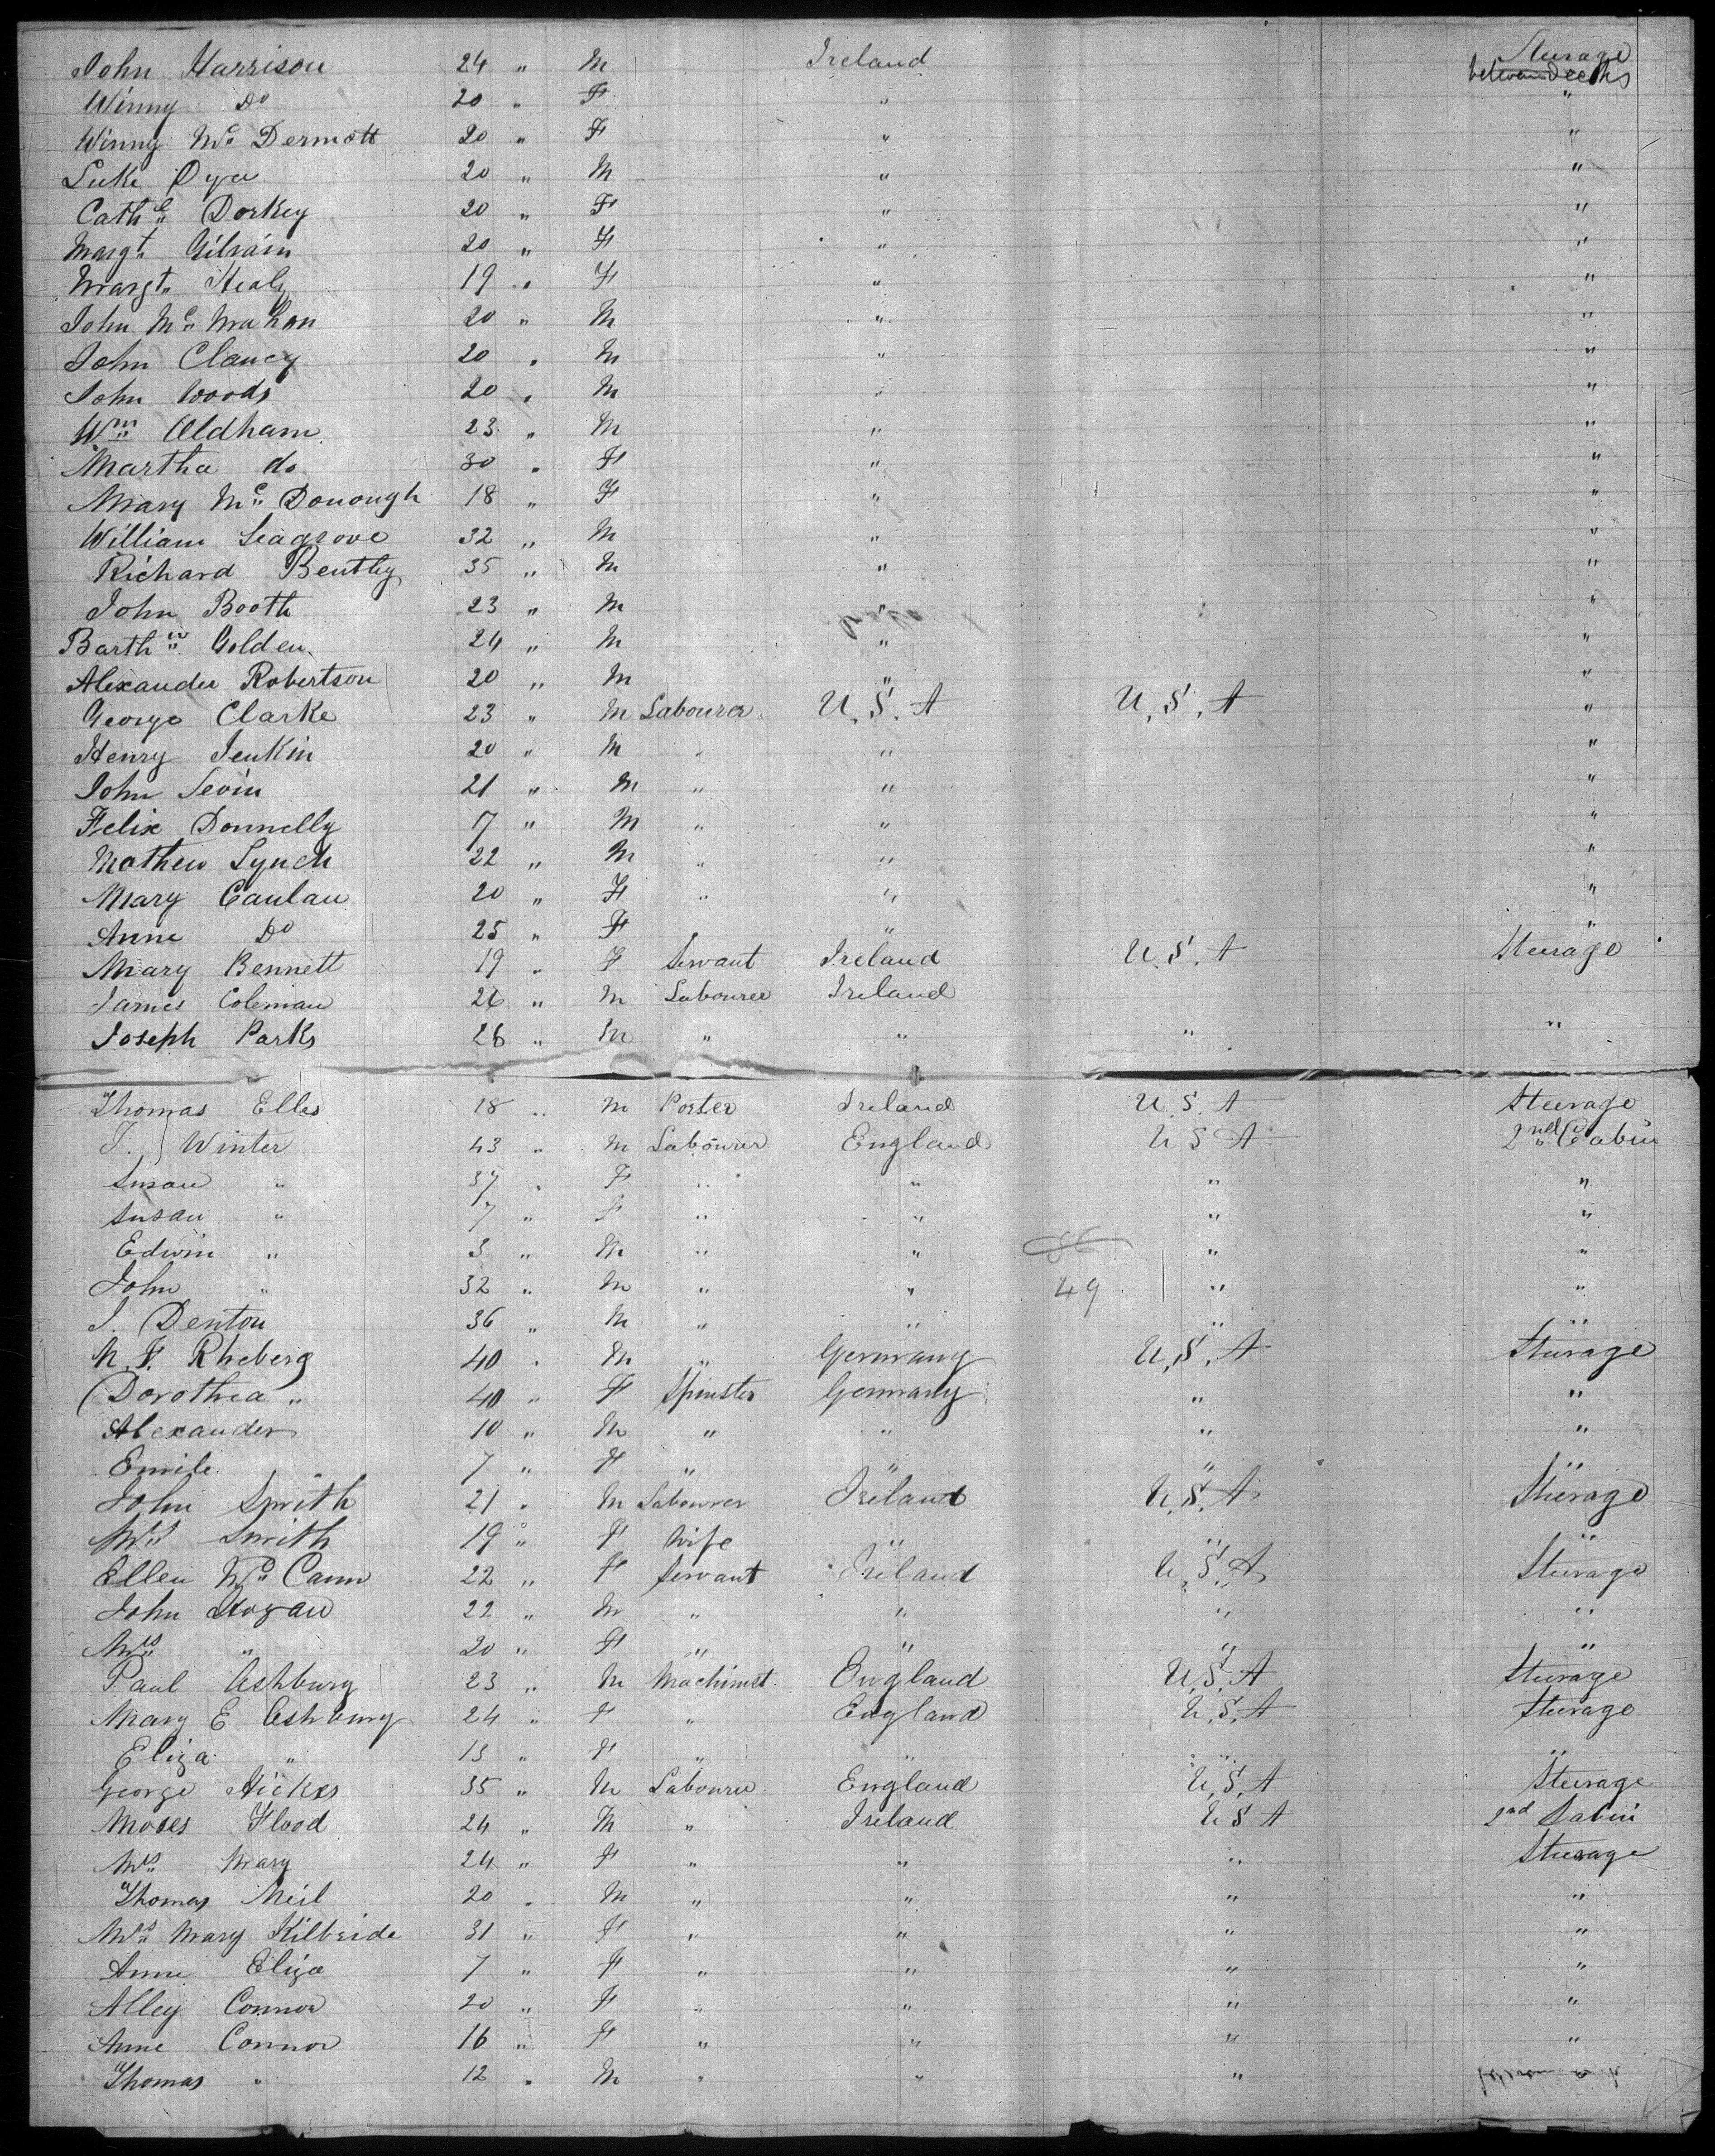 John Harrison 24 " M Ireland Steerage
between decks
Winny Do 20 " F " "
Winny Mc Dermott 20 " F " "
Luke Dyer 20 " M " "
Cathe Dorkey 20 " F " "
Margt Gilrain 20 " F " "
Margt Healy 19 " F " "
John Mc Mahon 20 " M " "
John Clancy 20 " M " "
John Woods 20 " M " "
Wm Oldham 23 " M " "
Martha do 30 " F " "
Mary Mc Donough 18 " F " "
William Seagrove 32 " M " "
Richard Bentley 35 " M " "
John Booth 23 " M " "
Barthw Golden 24 " M " "
Alexander Robertson 20 " M " "
George Clarke 23 " M Labourer U.S.A U.S.A "
Henry Jenkin 20 " M " " "
John Levin 21 " M " " "
Felix Donnelly 7 " M " " "
Mathew Lynch 22 " M " " "
Mary Caulan 20 " F " " "
Anne Do 25 " F " " "
Mary Bennett 19 " F Servant Ireland U.S.A Steerage
James Coleman 26 " M Labourer Ireland
Joseph Parks 26 " M " " " "
Thomas Elles 18 " M Porter Ireland U.S.A Steerage
T. Winter 43 " M Labourer England U S A 2nd Cabin
Susan " 37 " F " " " "
Susan " 7 " F " " " "
Edwin " 3 " M " " " "
John " 32 " M " " 49 " "
J. Denton 36 " M " " " "
N. F. Rheberg 40 " M " Germany U.S.A Steerage
Dorothea " 40 " F Spinster Germany " "
Alexander 10 " M " " " "
Emile 7 " F " " " "
John Smith 21 " M Labourer Ireland U.S.A Steerage
Mrs Smith 19 " F Wife " " "
Ellen Mc Cann 22 " F Servant Ireland U.S.A Steerage
John Hogan 22 " M " " " "
Mrs " 20 " F " " " "
Paul Ashbury 23 " M Machinist England U.S.A Steerage
Mary E Ashbury 24 " F " England U.S.A Steerage
Eliza " 13 " F " " " "
George Hickes 35 " M Labourer England U.S.A Steerage
Moses Flood 24 " M " Ireland U S A 2nd Cabin
Mrs Mary 24 " F " " " Steerage
Thomas Neil 20 " M " " " "
Mrs Mary Kilbride 31 " F " " " "
Anne Eliza 7 " F " " " "
Alley Connor 20 " F " " " "
Anne Connor 16 " F " " " "
Thomas " 12 " M " " "